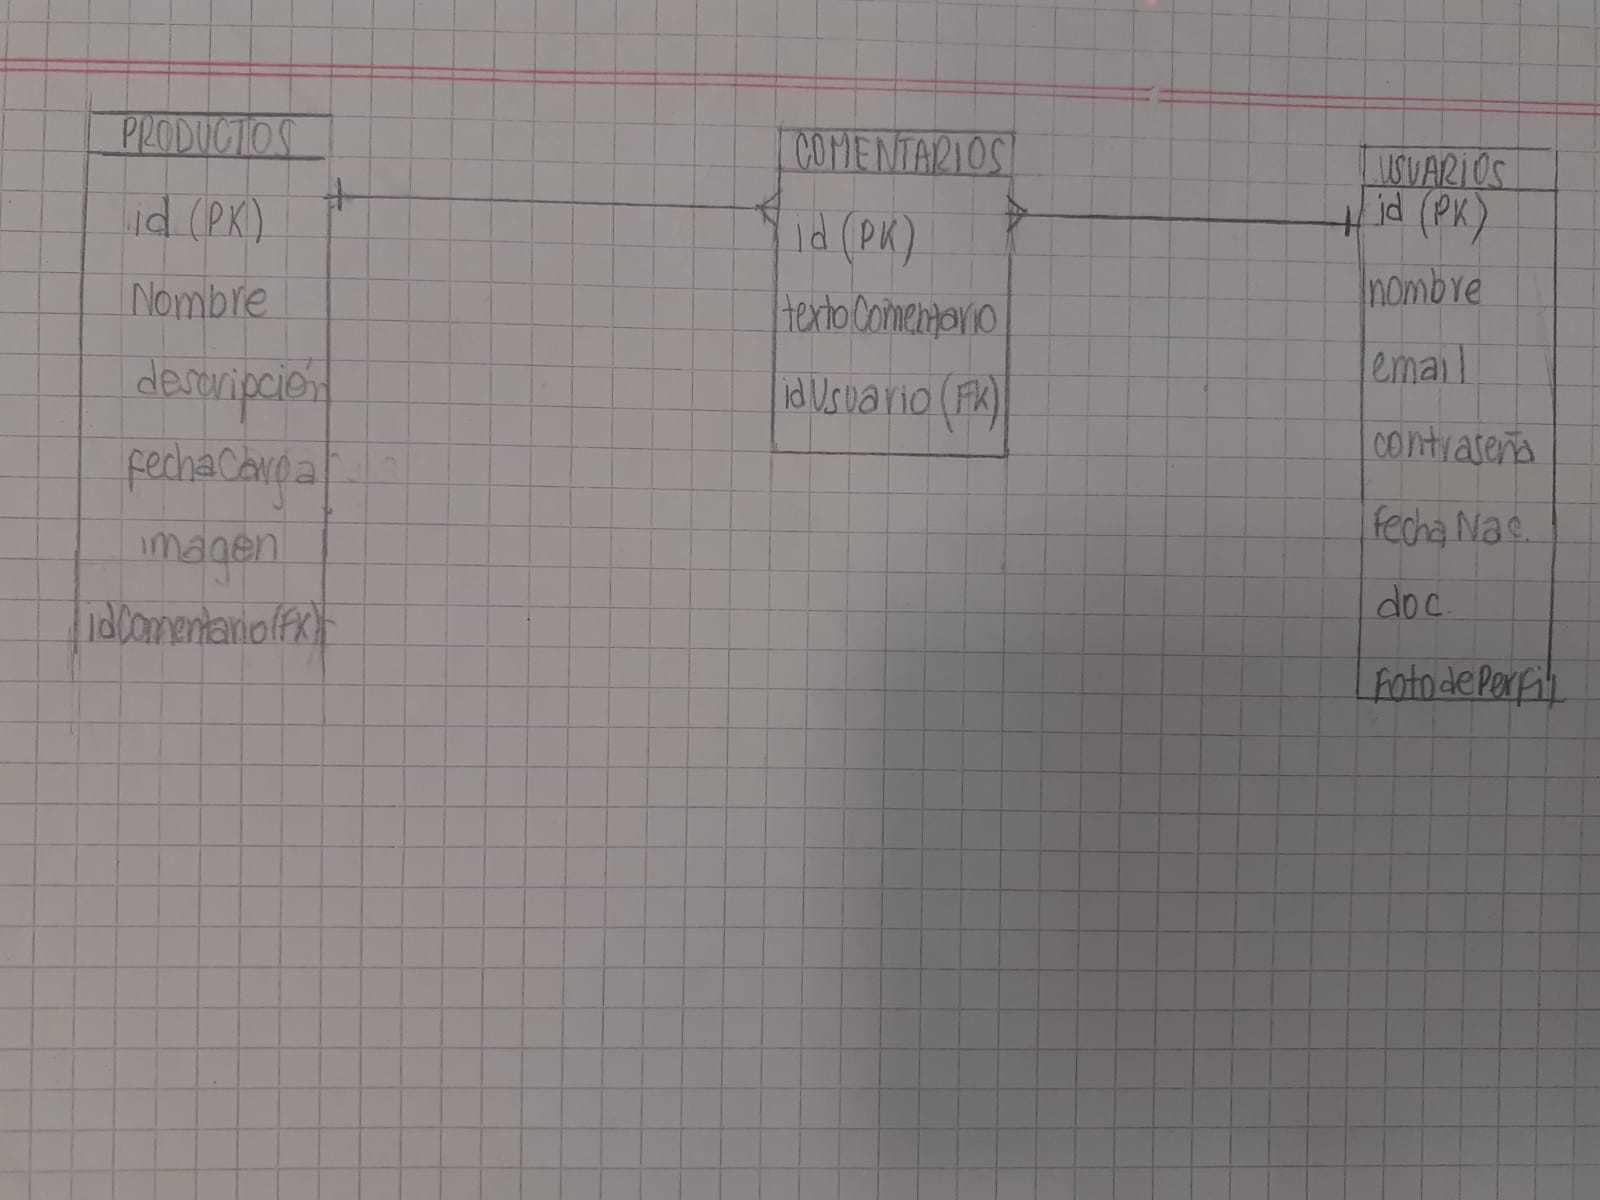 PRODUCTOS
id (PK)
Nombre
descripción
fechaCarga
imagen
idComentario(FK)
COMENTARIOS
id (PK)
textoComentario
idUsuario (FK)
USUARIOS
id (PK)
nombre
email
contraseña
fechaNac.
doc.
FotodePerfil